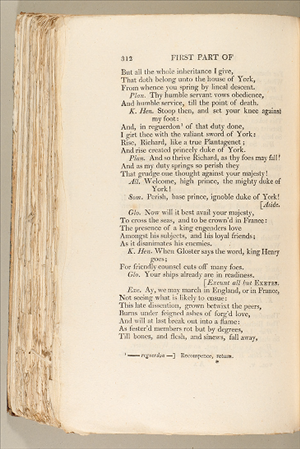 312 FIRST PART OF
But all the whole inheritance I give,
That doth belong unto the house of York,
From whence you spring by lineal descent.
Plan. Thy humble servant vows obedience,
And humble service, till the point of death.
K. Hen. Stoop then, and set your knee against
my foot:
And, in reguerdon¹ of that duty done,
I girt thee with the valiant sword of York:
Rise, Richard, like a true Plantagenet;
And rise created princely duke of York.
Plan. And so thrive Richard, as thy foes may fall!
And as my duty springs so perish they
That grudge one thought against your majesty!
All. Welcome, high prince, the mighty duke of
York!
Som. Perish, base prince, ignoble duke of York!
[Aside.
Glo. Now will it best avail your majesty,
To cross the seas, and to be crown'd in France:
The presence of a king engenders love
Amongst his subjects, and his loyal friends;
As it disanimates his enemies.
K. Hen. When Gloster says the word, king Henry
goes;
For friendly counsel cuts off many foes.
Glo. Your ships already are in readiness.
[Exeunt all but EXETER.
Exe. Ay, we may march in England, or in France,
Not seeing what is likely to ensue:
This late dissention, grown betwixt the peers,
Burns under feigned ashes of forg'd love,
And will at last break out into a flame:
As fester'd members rot but by degrees,
Till bones, and flesh, and sinews, fall away,
¹ — reguerdon —] Recompence, return.